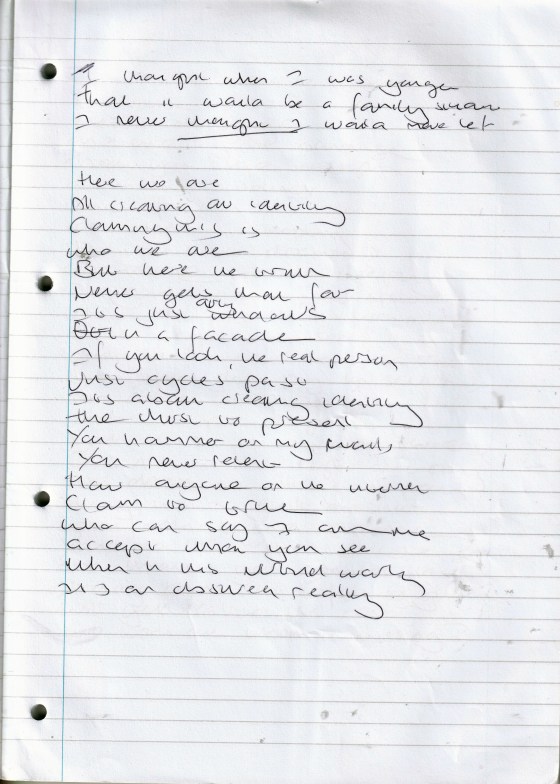 I thought when I was younger
that it would be a family
I never thought I would have let
Here we are
All creating an identity
Claiming this is
who we are
But here the truth
Never gets that far
Its just windows
in a facade
If you look, the real person
Just cycles past
Its about creating identity
the mask to present
You hammer on my walls
You never relent
Has anyone on the
Claim to true
who can say I am me
accept what you see
when in this world
its an absurd reality